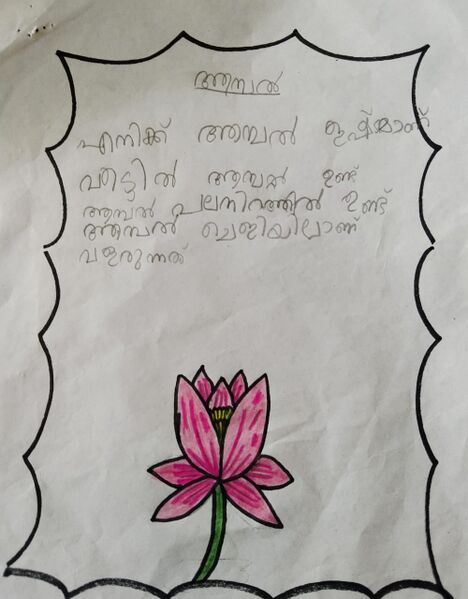 ആമ്പൽ
എനിക്ക് ആമ്പൽ ഇഷ്ടമാണ്
വീട്ടിൽ ആമ്പൽ ഉണ്ട്
ആമ്പൽ പലനിറത്തിൽ ഉണ്ട്
ആമ്പൽ ചെളിയിലാണ്
വളരുന്നത്